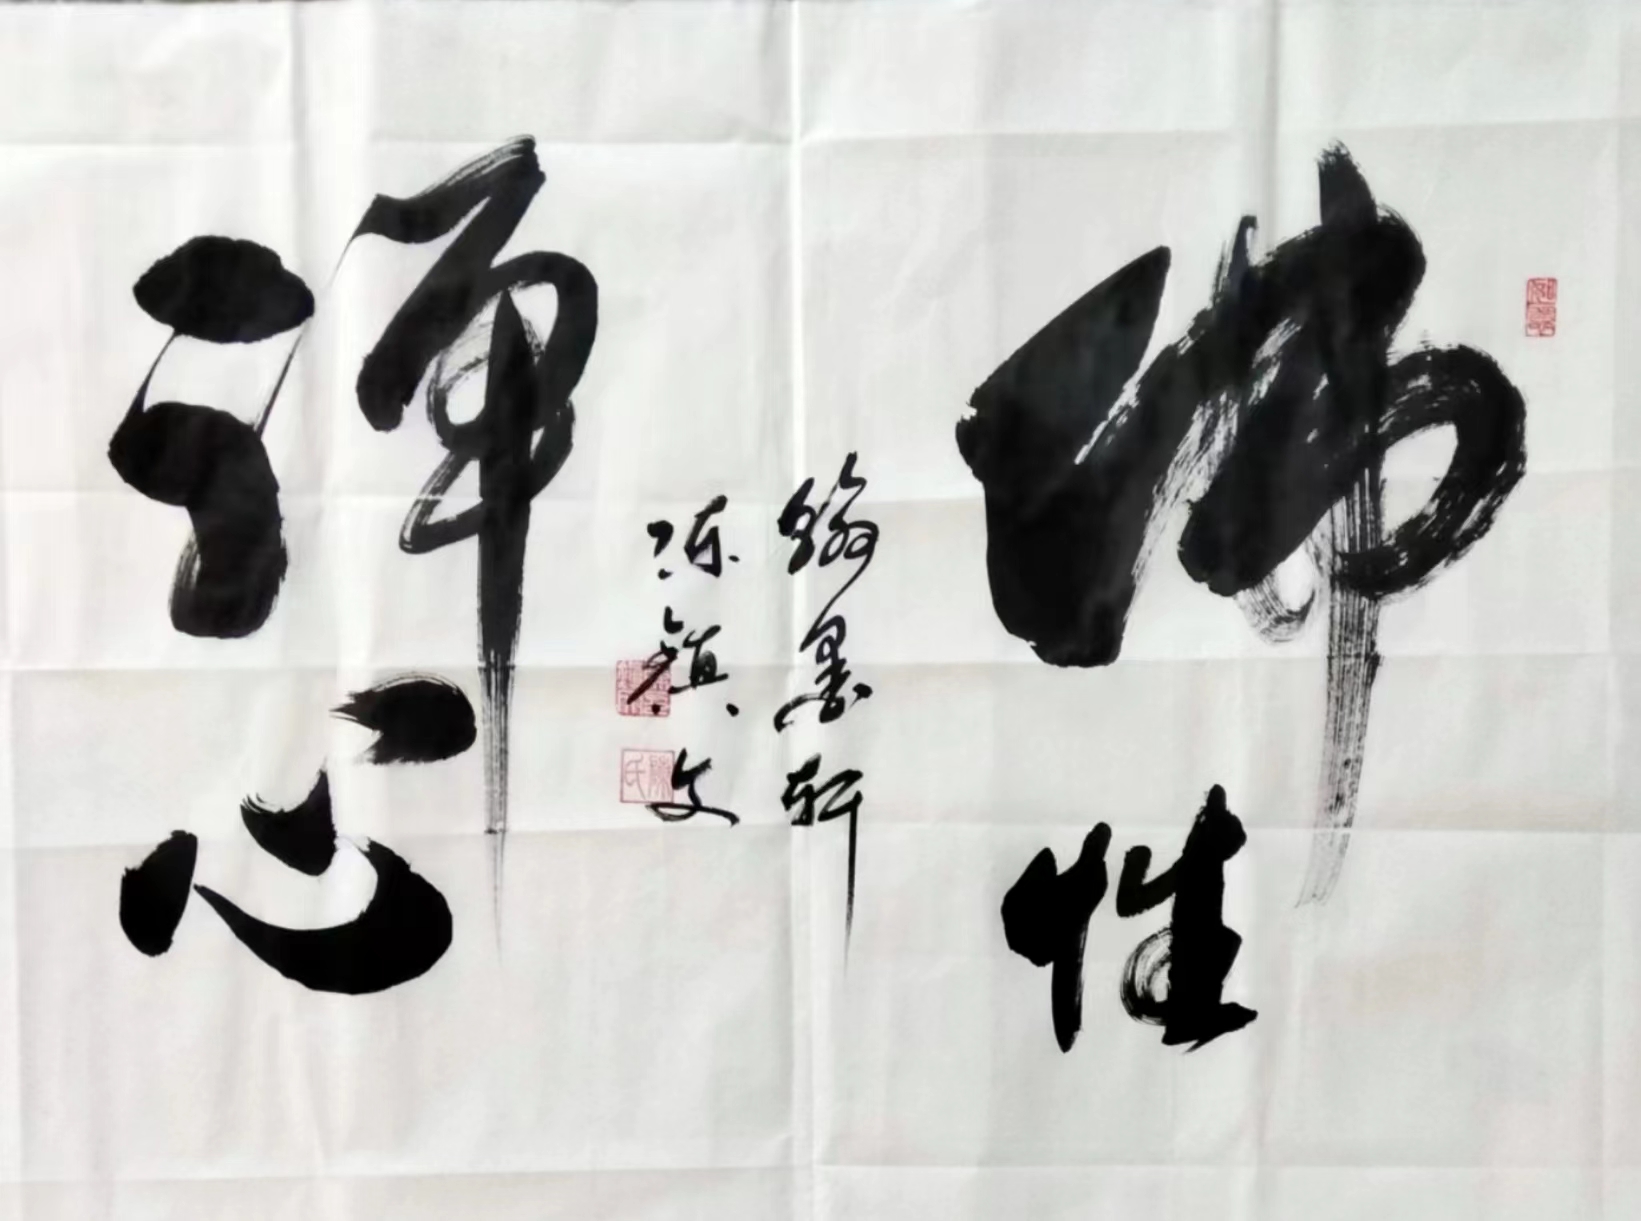 佛性
禅心
翰墨轩
陈镇文